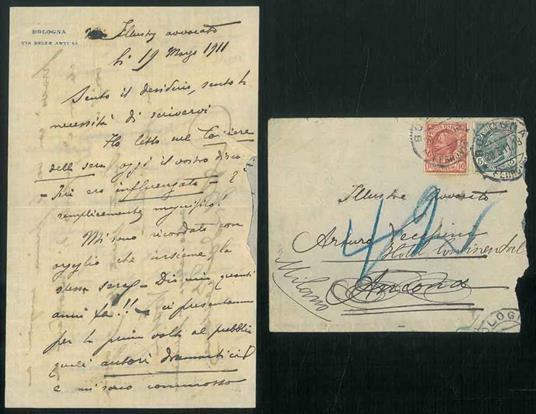 BOLOGNA
VIA DELLE ARTI
Illustre avvocato
li 19 Marzo 1911
Sento il desiderio, sento la
necessità di scrivervi
Ho letto nel Corriere
della sera oggi il vostro discorso
È
semplicemente magnifico!
Mi sono ricordato con
orgoglio che insieme la
stessa sera - quanti
anni fa!! - ci presentammo
per la prima volta al pubblico
quali autori drammatici
e mi sono commosso
BOLOGNA
Illustre avvocato
Arturo Vecchini
Hôtel Continental
Ancona
Milano
BOLOGNA